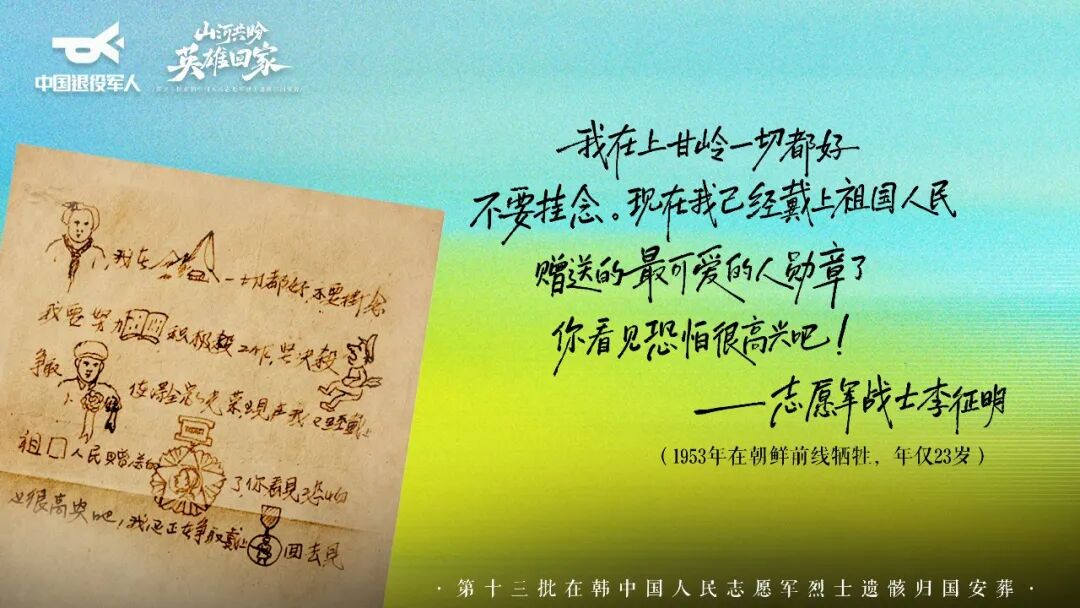 中国退役军人
山河共盼
英雄回家
我在上甘岭一切都好
不要挂念。现在我已经戴上祖国人民
赠送的最可爱的人勋章了
你看见恐怕很高兴吧！
——志愿军战士李征明
（1953年在朝鲜前线牺牲，年仅23岁）
我在 一切都好不要掛念
我要努力 积极 工作，
争取 光荣現在我已經戴上
祖 人民赠送的 了，你看見恐怕
也很高兴吧！我还正在争取戴上 回去見
第十三批在韩中国人民志愿军烈士遗骸归国安葬